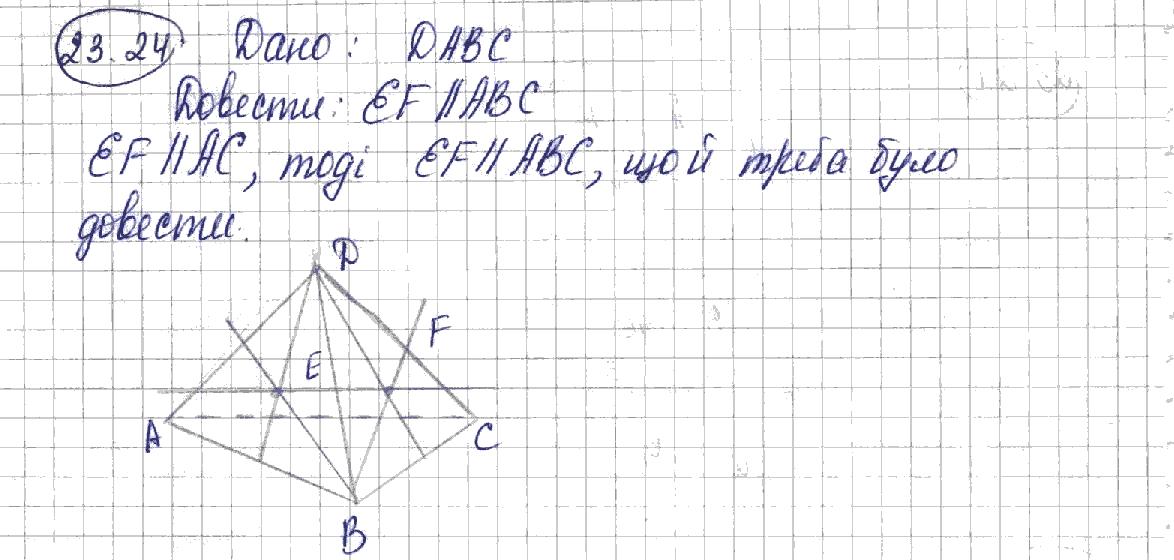 23.24. Дано: DABC
Довести: EF ∥ ABC
EF ∥ AC, тоді EF ∥ ABC, що й треба було
довести.
D
F
E
A
C
B